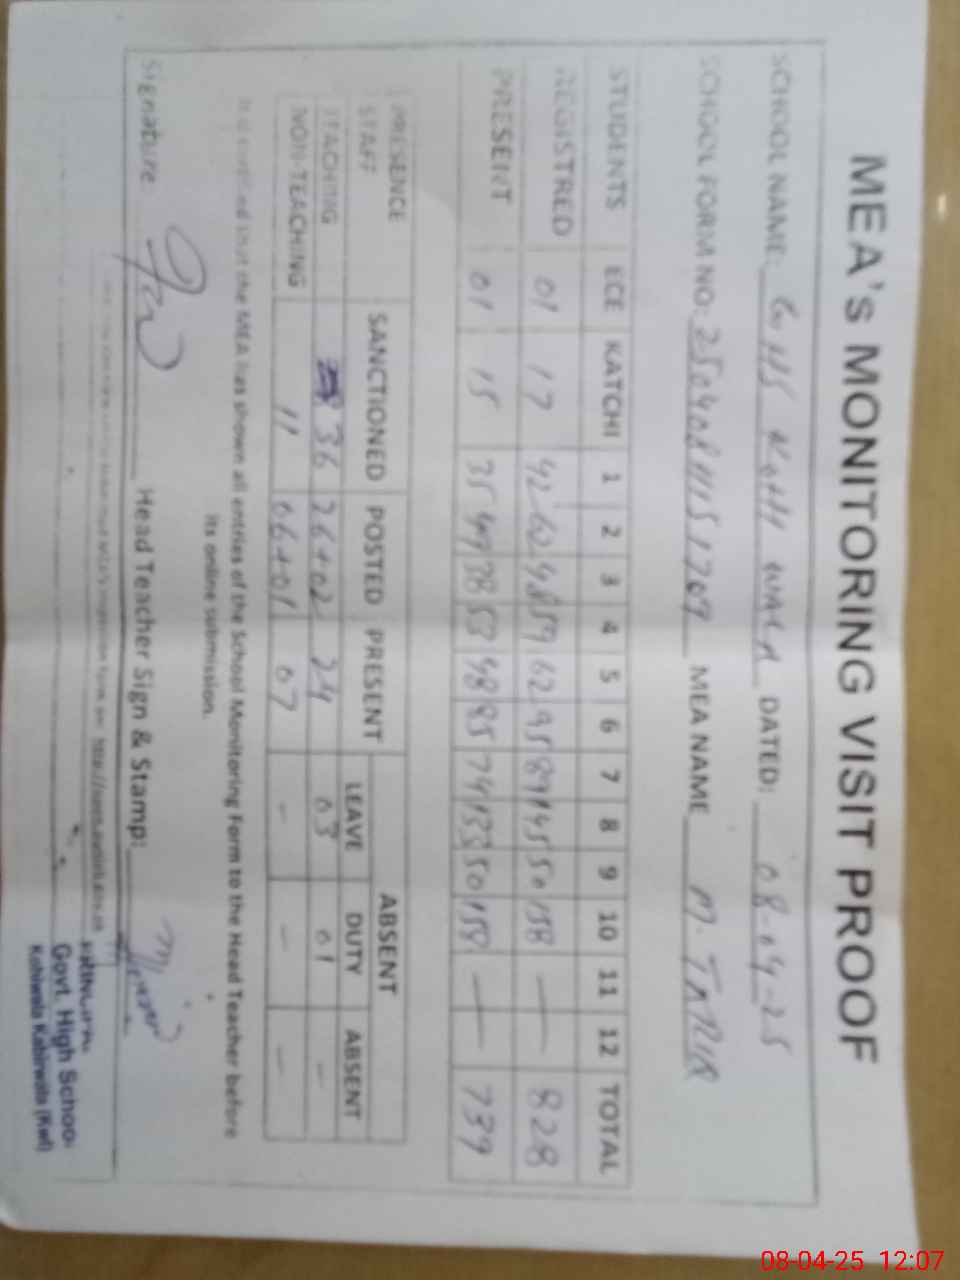 MEA's MONITORING VISIT PROOF
SCHOOL NAME: GHS KOTHI WALA DATED: 08-04-25
SCHOOL FORM NO: MEA NAME M. TAHIR
STUDENTS ECE KATCHI 1 2 3 4 5 6 7 8 9 10 11 12 TOTAL
REGISTRED 01 17 42 62 48 59 62 95 89 145 50 158 — 828
PRESENT 01 15 35 49 38 53 48 85 74 133 50 158 — 739
PRESENCE STAFF SANCTIONED POSTED PRESENT ABSENT
LEAVE DUTY ABSENT
TEACHING 36 26+02 24 03 01 -
NON-TEACHING 11 06+01 07 - - -
It is certified that the MEA has shown all entries of the School Monitoring Form to the Head Teacher before
its online submission.
Signature Head Teacher Sign & Stamp:
Govt. High School
Kabirwala (Kwl)
08-04-25 12:07